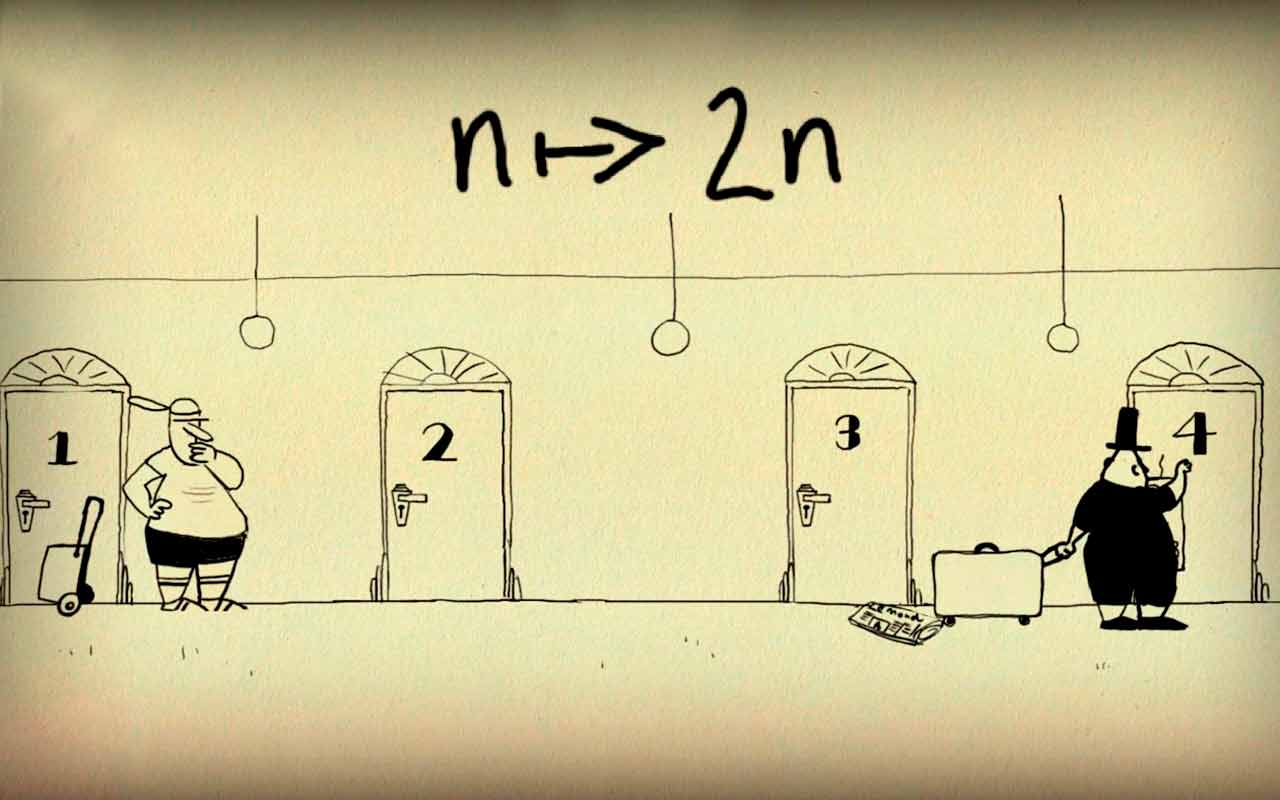 n ↦ 2n
1 2 3 4
Le Mond